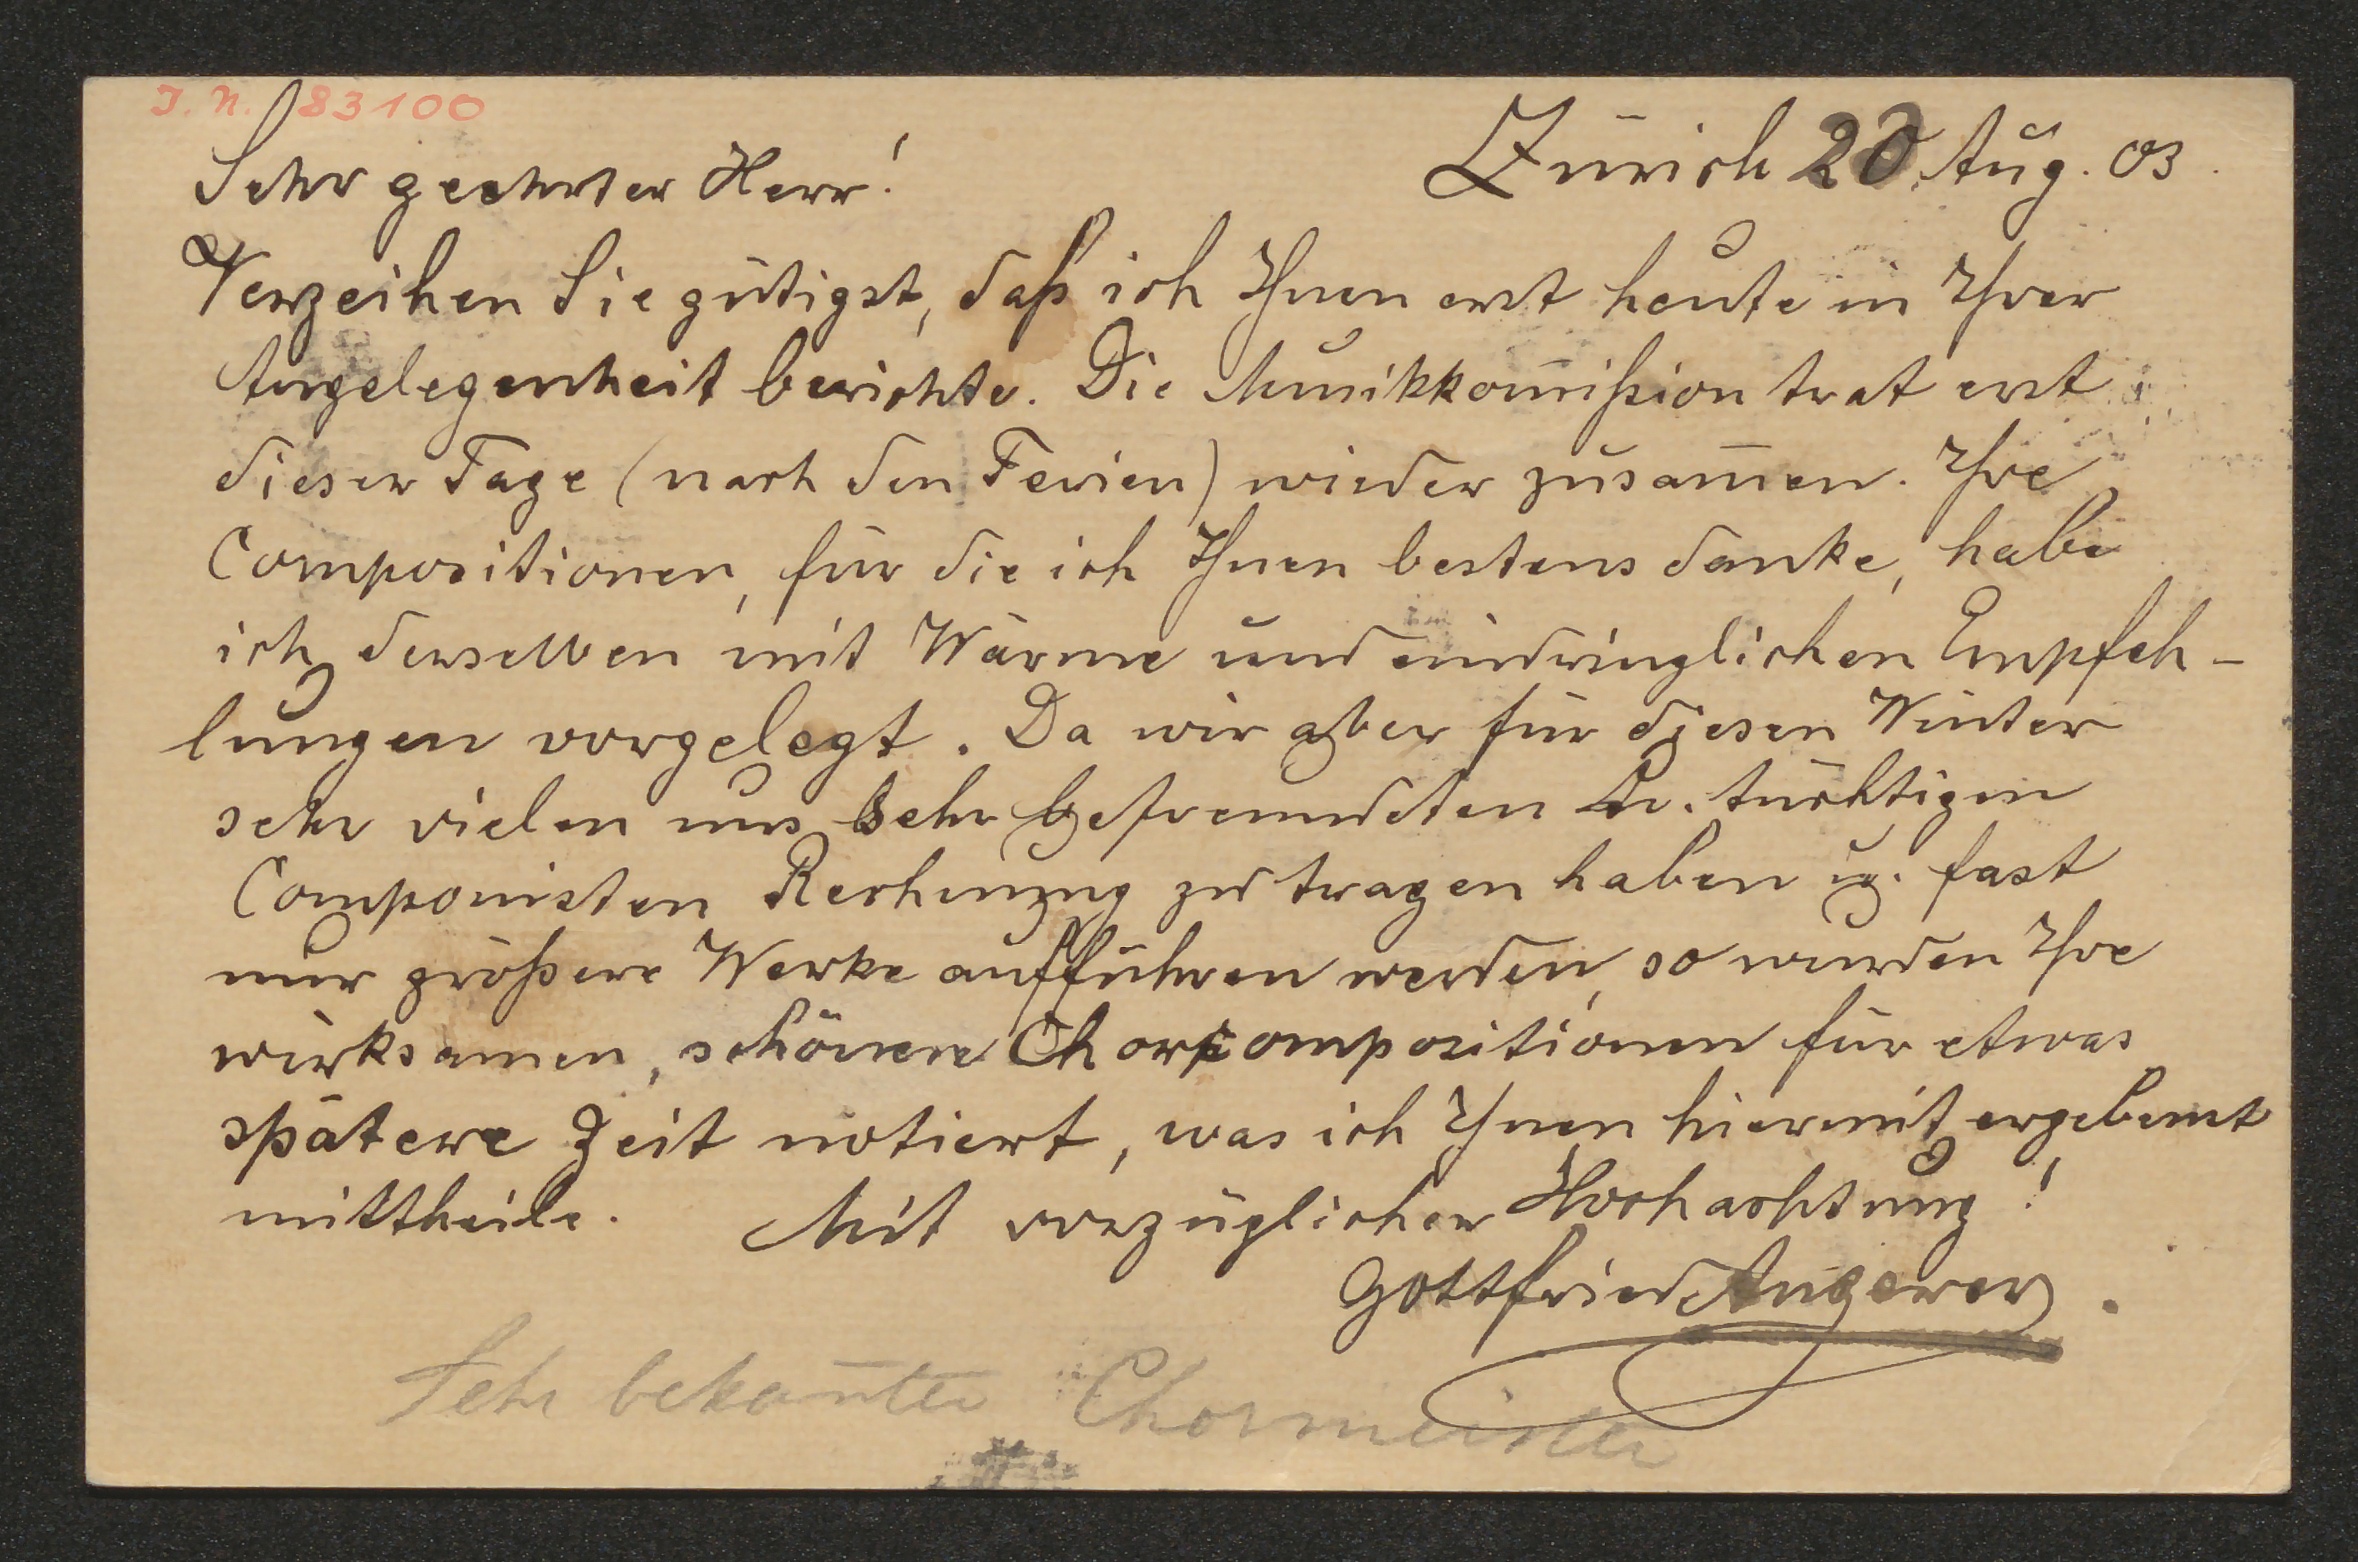 I. N. 83100
Zürich 20. Aug. 03.
Sehr geehrter Herr!
Verzeihen Sie gütigst, daß ich Ihnen erst heute in Ihrer
Angelegenheit berichte. Die Musikkom̅ißion trat erst
dieser Tage (nach den Ferien) wieder zusam̅en. Ihre
Compositionen, für die ich Ihnen bestens danke, habe
ich derselben mit Wärme und eindringlichen Empfeh-
lungen vorgelegt. Da wir aber für diesen Winter
sehr vielen uns sehr befreundeten u. tüchtigen
Componisten Rechnung zu tragen haben u. fast
nur größere Werke aufführen werden, so wurden Ihre
wirksamen, schönen Chorcompositionen für etwas
spätere Zeit notiert, was ich Ihnen hiermit ergebenst
mittheile. Mit vorzüglicher Hochachtung!
Gottfried Angerer.
Sehr bekan̅ter Chormeister